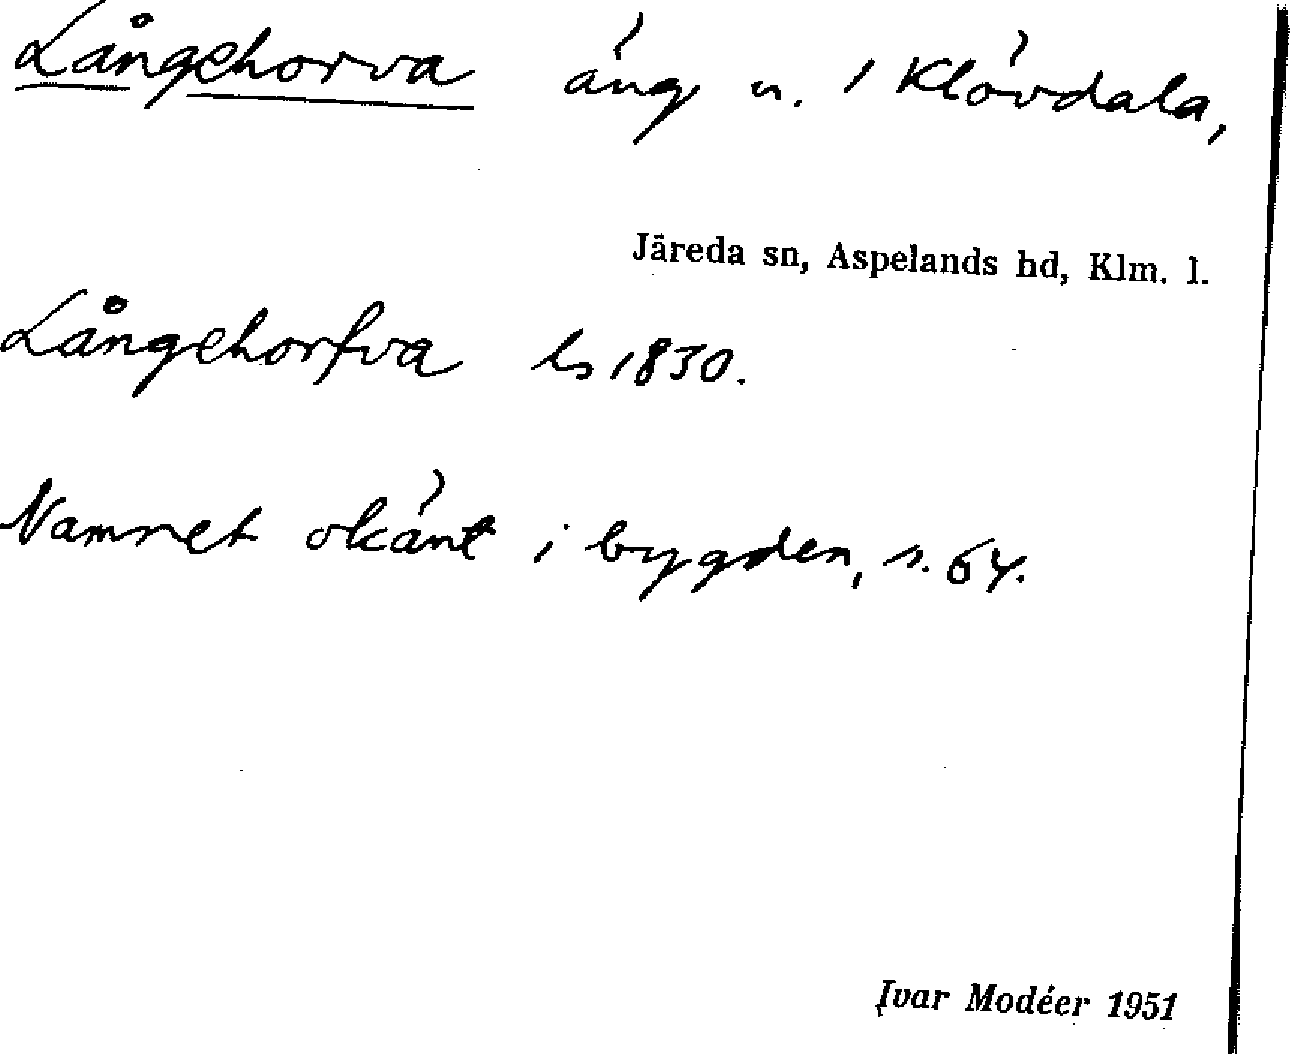 Långehorva äng u. 1 Klövdala,
Järeda sn, Aspelands hd, Klm. l.
Långehorfva ls 1830.
Namnet okänt i bygden, s. 64.
Ivar Modéer 1951